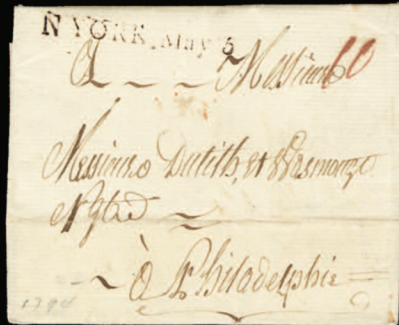 N YORK, May 6
A — — — Messieurs
Messieurs Dutilh, et Wasmouze
Ngts
~ à Philadelphie =
1794